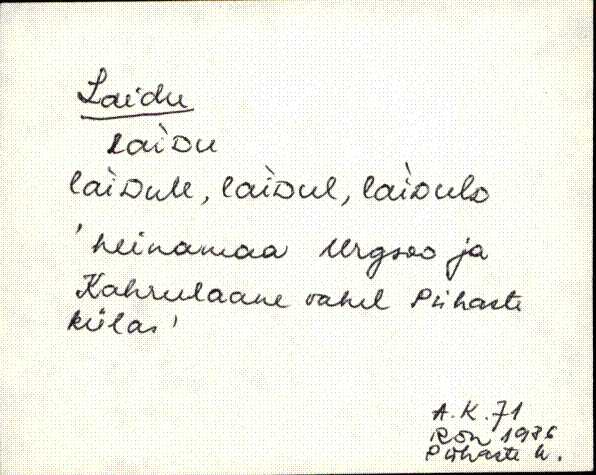 Laidu
laìDu
laìDule, laìDul, laìDulD
'heinamaa Urgsoo ja
Kahrulaane vahel Pühaste
külas'
A.K. 71
Rõn 1986
Pühaste k.